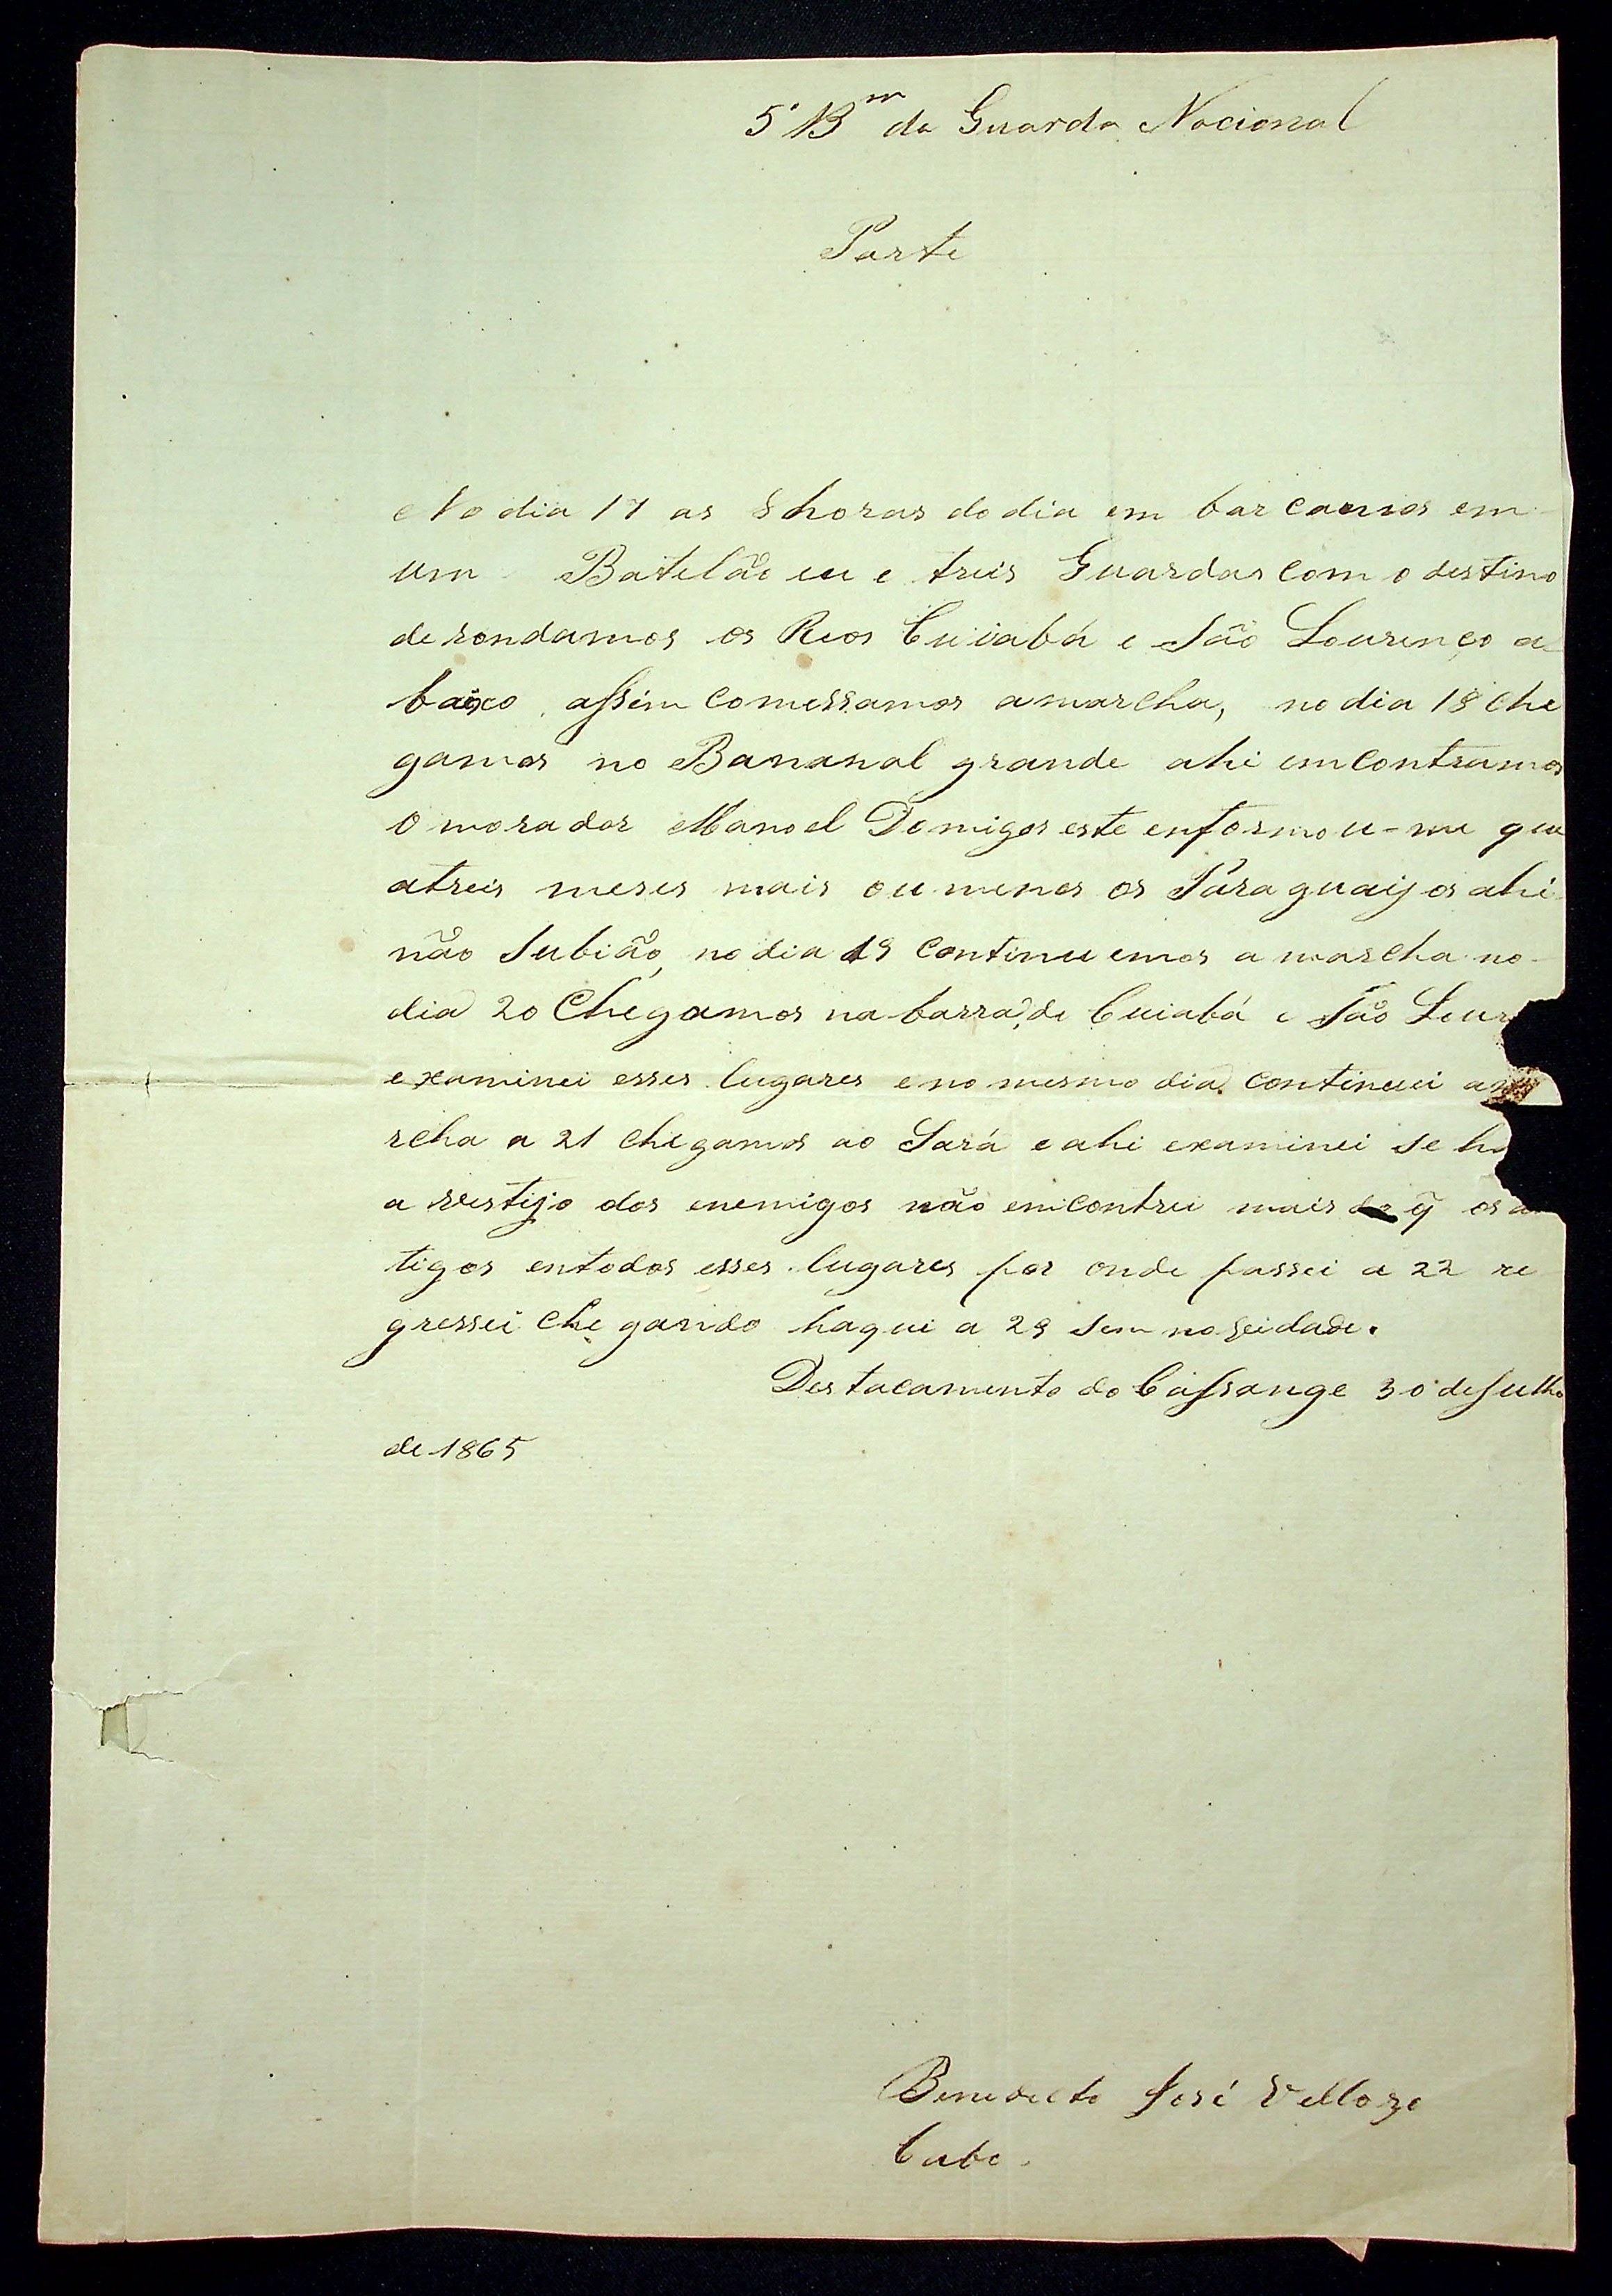 5º Bm da Guarda Nacional
Parte
No dia 17 as 8 horas do dia em barcamos em
um Batelão eu e treis Guardas com o destino
de rondamos os Rios Cuiabá e São Lourenço a
baixo, assim comessamos amarcha, no dia 18 che
gamos no Bananal grande ahi emcontramos
O morador Manoel Domigos este enformou-me que
atreis meses mais ou menos os Paraguaijos ahi
não Subião, no dia 19 continuemos a marcha no
dia 20 Chegamos na barra de Cuiabá e São Lour
examinei esses lugares e no mesmo dia continuei a
rcha a 21 chegamos ao Sará e ahi examinei se h
a vestijo dos enemigos não emcontrei mais do q̃ os
tigos entodos esses lugares por onde passei a 22 re
gressei chegando haqui a 29 sem noveidade.
Destacamento do Cassange 30 de Julho
de 1865
Benedicto José Vellozo
Cabo.